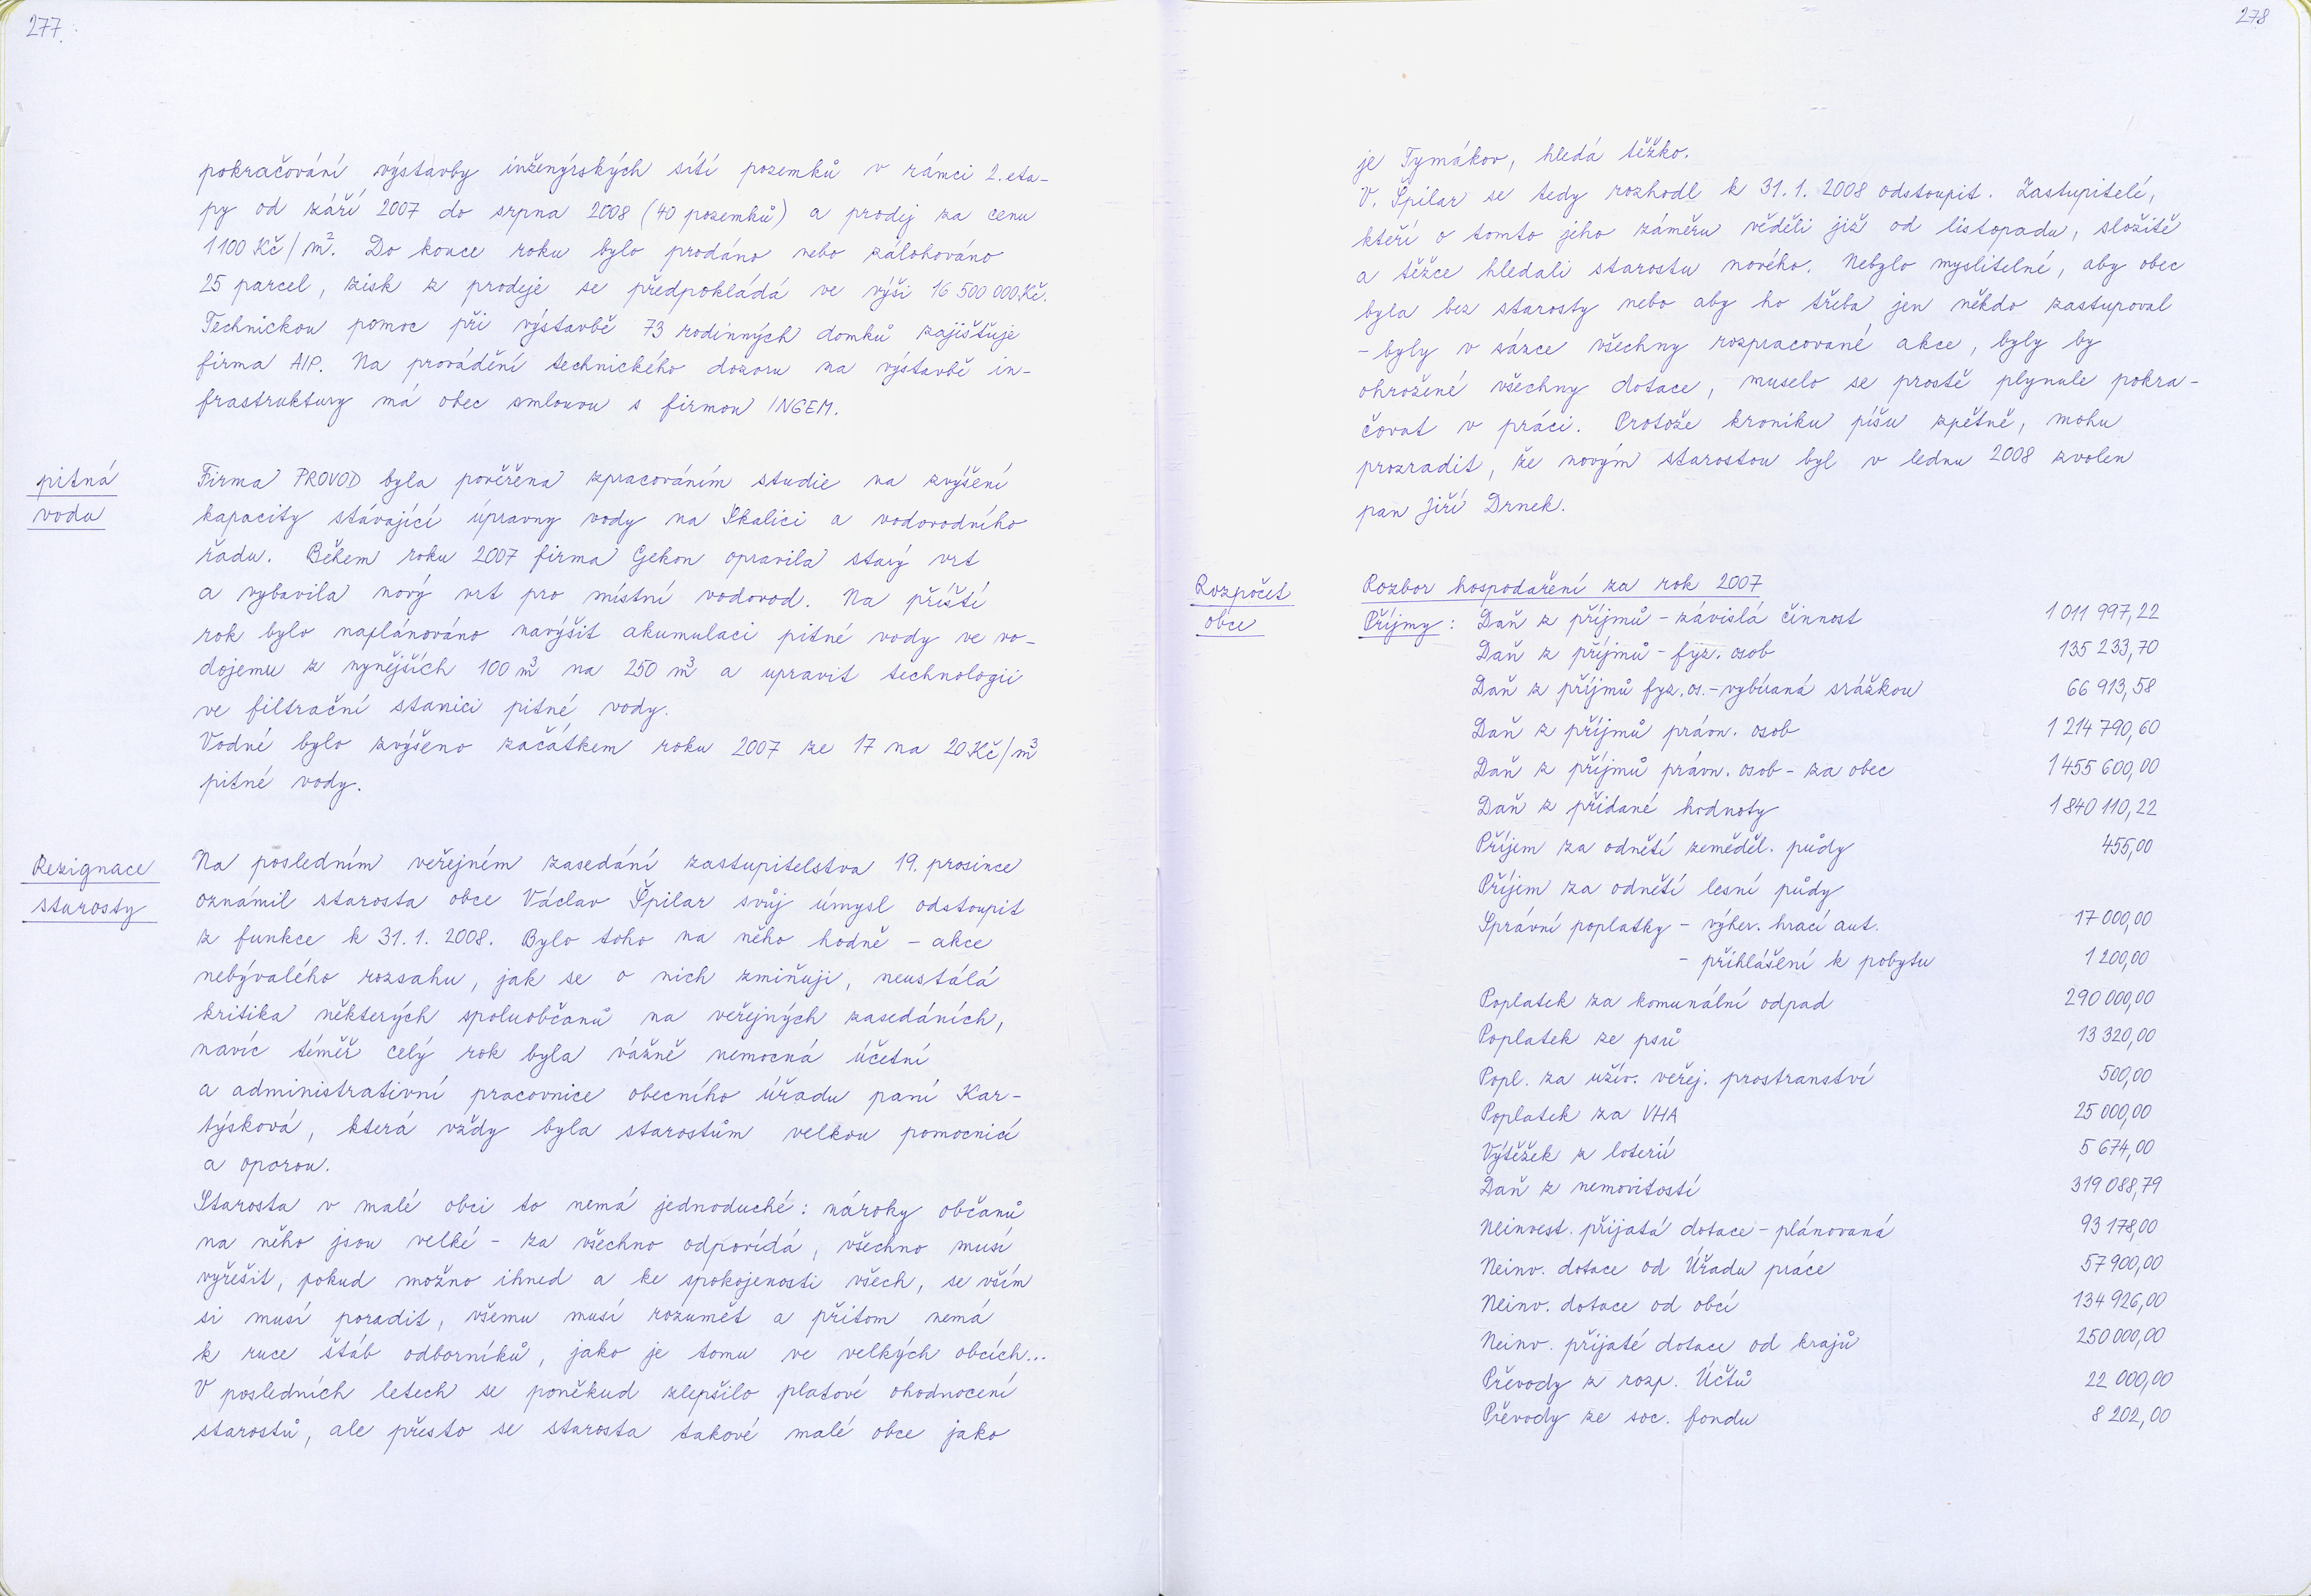 277.
pokračování výstavby inženýrských sítí pozemků v rámci 2. eta-
py od září 2007 do srpna 2008 (40 pozemků) a prodej za cenu
1100 Kč/m². Do konce roku bylo prodáno nebo zálohováno
25 parcel, zisk z prodeje se předpokládá ve výši 16 500 000 Kč.
Technickou pomoc při výstavbě 73 rodinných domků zajišťuje
firma AIP. Na provádění technického dozoru na výstavbě in-
frastruktury má obec smlouvu s firmou INGEM.
pitná
voda
Firma PROVOD byla pověřena zpracováním studie na zvýšení
kapacity stávající úpravny vody na Skalici a vodovodního
řadu. Během roku 2007 firma Gekon opravila starý vrt
a vybavila nový vrt pro místní vodovod. Na příští
rok bylo naplánováno navýšit akumulaci pitné vody ve vo-
dojemu z nynějších 100 m³ na 250 m³ a upravit technologii
ve filtrační stanici pitné vody.
Vodné bylo zvýšeno začátkem roku 2007 ze 17 na 20 Kč/m³
pitné vody.
Rezignace
starosty
Na posledním veřejném zasedání zastupitelstva 19. prosince
oznámil starosta obce Václav Špilar svůj úmysl odstoupit
z funkce k 31. 1. 2008. Bylo toho na něho hodně - akce
nebývalého rozsahu, jak se o nich zmiňuji, neustálá
kritika některých spoluobčanů na veřejných zasedáních,
navíc téměř celý rok byla vážně nemocná účetní
a administrativní pracovnice obecního úřadu paní Kar-
týsková, která vždy byla starostům velkou pomocnicí
a oporou.
Starosta v malé obci to nemá jednoduché: nároky občanů
na něho jsou velké - za všechno odpovídá, všechno musí
vyřešit, pokud možno ihned a ke spokojenosti všech, se vším
si musí poradit, všemu musí rozumět a přitom nemá
k ruce štáb odborníků, jako je tomu ve velkých obcích...
V posledních letech se poněkud zlepšilo platové ohodnocení
starostů, ale přesto se starosta takové malé obce jako
278
je Tymákov, hledá těžko.
V. Špilar se tedy rozhodl k 31. 1. 2008 odstoupit. Zastupitelé,
kteří o tomto jeho záměru věděli již od listopadu, složitě
a těžce hledali starostu nového. Nebylo myslitelné, aby obec
byla bez starosty nebo aby ho třeba jen někdo zastupoval
- byly v sázce všechny rozpracované akce, byly by
ohrožené všechny dotace, muselo se prostě plynule pokra-
čovat v práci. Protože kroniku píšu zpětně, mohu
prozradit, že novým starostou byl v lednu 2008 zvolen
pan Jiří Drnek.
Rozpočet
obce
Rozbor hospodaření za rok 2007
Příjmy: Daň z příjmů - závislá činnost 1 011 997,22
Daň z příjmů - fyz. osob 135 233,70
Daň z příjmů fyz. os. - vybíraná srážkou 66 913,58
Daň z příjmů práv. osob 1 214 790,60
Daň z příjmů práv. osob - za obec 1 455 600,00
Daň z přidané hodnoty 1 840 110,22
Příjem za odnětí zeměděl. půdy 455,00
Příjem za odnětí lesní půdy
Správní poplatky - výher. hrací aut. 17 000,00
- přihlášení k pobytu 1 200,00
Poplatek za komunální odpad 290 000,00
Poplatek ze psů 13 320,00
Popl. za užív. veřej. prostranství 500,00
Poplatek za VHA 25 000,00
Výtěžek z loterií 5 674,00
Daň z nemovitostí 319 088,79
Neinvest. přijatá dotace - plánovaná 93 178,00
Neinv. dotace od Úřadu práce 57 900,00
Neinv. dotace od obcí 134 926,00
Neinv. přijaté dotace od krajů 250 000,00
Převody z rozp. Účtů 22 000,00
Převody ze soc. fondu 8 202,00